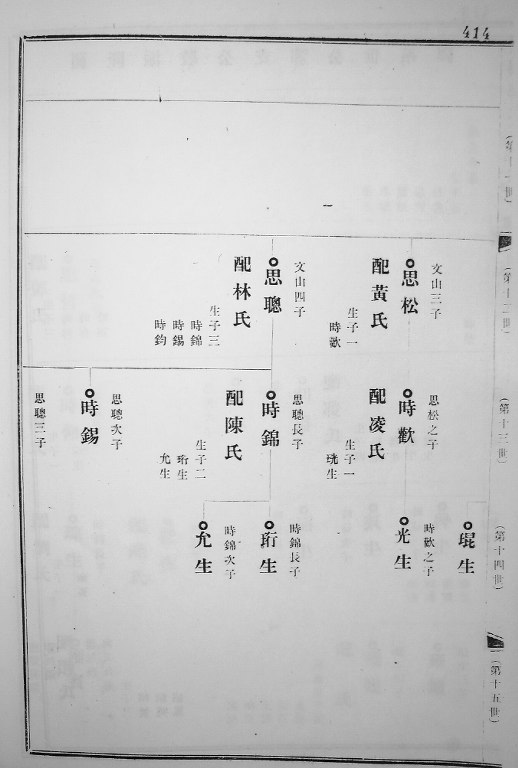 414
(第十一世)
(第十二世)
文山三子
思松
配黃氏
生子一
時歡
文山四子
思聰
配林氏
生子三
時錦
時錫
時鈞
(第十三世)
思松之子
時歡
配凌氏
生子一
珖生
思聰長子
時錦
配陳氏
生子二
珩生
允生
思聰次子
時錫
思聰三子
(第十四世)
琨生
時歡之子
光生
時錦長子
珩生
時錦次子
允生
(第十五世)